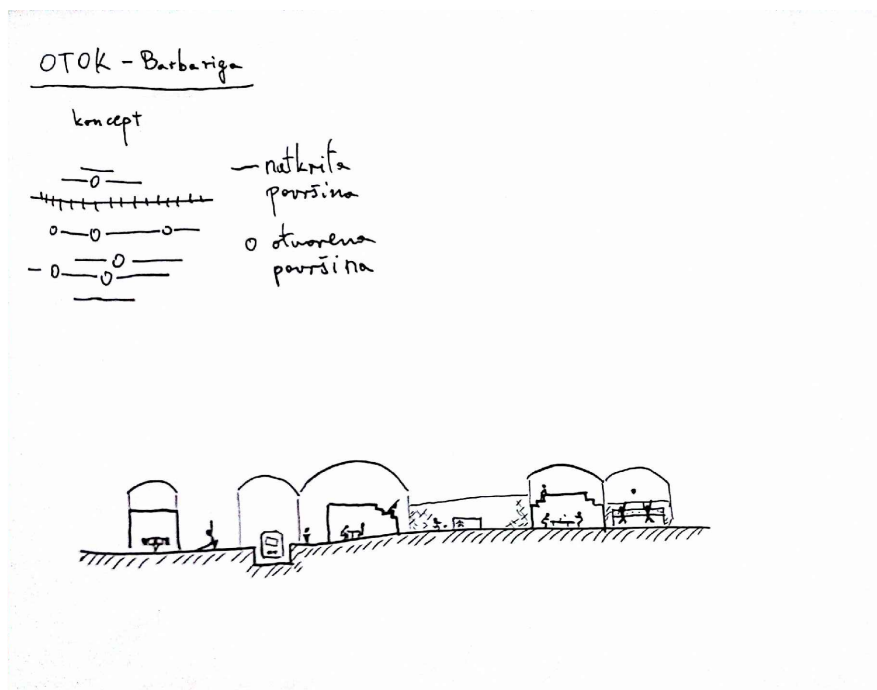 OTOK - Barbariga
koncept
natkrita
površina
otvorena
površina